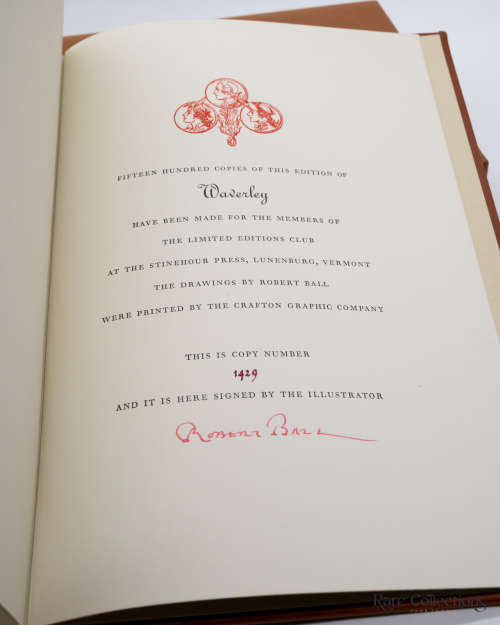 FIFTEEN HUNDRED COPIES OF THIS EDITION OF
Waverley
HAVE BEEN MADE FOR THE MEMBERS OF
THE LIMITED EDITIONS CLUB
AT THE STINEHOUR PRESS, LUNENBURG, VERMONT
THE DRAWINGS BY ROBERT BALL
WERE PRINTED BY THE CRAFTON GRAPHIC COMPANY
THIS IS COPY NUMBER
1429
AND IT IS HERE SIGNED BY THE ILLUSTRATOR
ROBERT BALL
Rare Collections